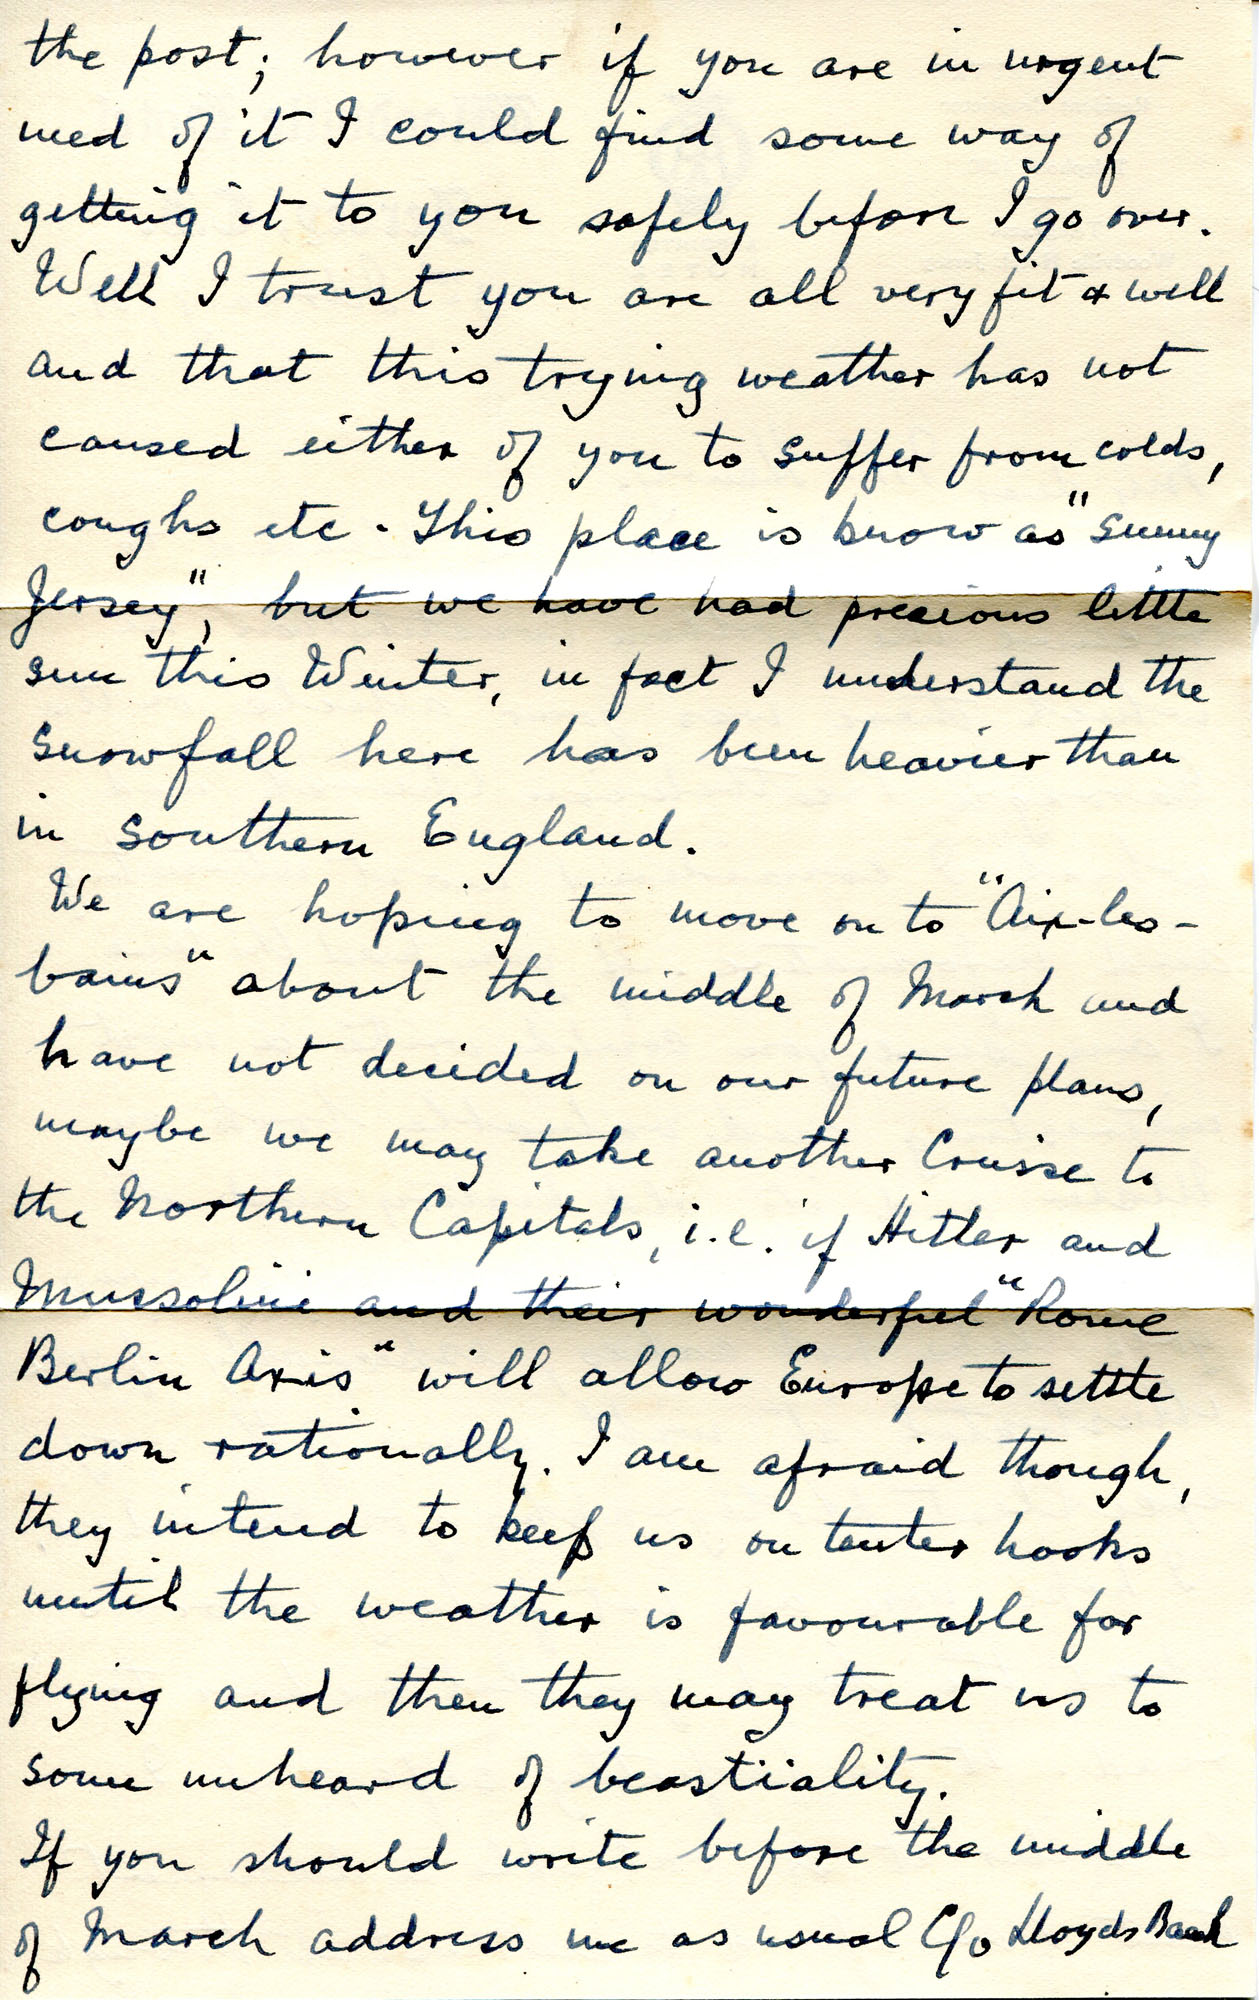 the post; however if you are in urgent
need of it I could find some way of
getting it to you safely before I go over.
Well I trust you are all very fit & well
and that this trying weather has not
caused either of you to suffer from colds,
coughs etc. This place is know as "Sunny
Jersey", but we have had precious little
sun this Winter, in fact I understand the
snowfall here has been heavier than
in Southern England.
We are hoping to move on to "Aix-les-
bains" about the middle of March and
have not decided on our future plans,
maybe we may take another Cruise to
the Northern Capitals, i.e. if Hitler and
Mussolini and their wonderful "Rome
Berlin Axis" will allow Europe to settle
down rationally. I am afraid though,
they intend to keep us on tenter hooks
until the weather is favourable for
flying and then they may treat us to
some unheard of beastiality.
If you should write before the middle
of March address me as usual C/o Lloyds Bank